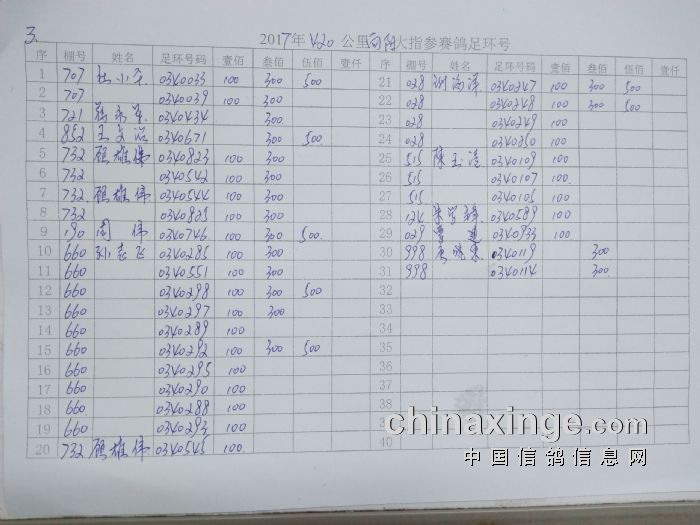 3.
2017年420公里 大指参赛鸽足环号
序 棚号 姓名 足环号码 壹佰 叁佰 伍佰 壹仟 序 棚号 姓名 足环号码 壹佰 叁佰 伍佰 壹仟
1 707 杜小 0340033 100 300 500 21 028 海洋 0340247 100 300 500
2 707 0340039 100 300 22 028 0340248 100 300 500
3 721 0340434 300 23 028 0340249 100
4 852 王 0340671 300 500 24 028 0340250 100
5 732 顾雄伟 0340823 100 300 25 515 陈玉 0340109 100
6 732 0340542 100 300 26 515 0340107 100
7 732 顾雄伟 0340544 100 300 27 515 0340105 100
8 732 0340825 100 300 28 124 朱 0340589 100
9 190 周伟 0340746 100 300 500 29 029 曹 0340933 100
10 660 孙志飞 0340285 100 300 30 998 0340119 300
11 660 0340551 100 300 31 998 0340114 300
12 660 0340298 100 300 500 32
13 660 0340297 100 300 33
14 660 0340289 100 34
15 660 0340292 100 300 500 35
16 660 0340295 100 35
17 660 0340290 100 37
18 660 0340288 100 38
19 660 0340293 100
20 732 顾雄伟 0340545 100 40
chinaxinge.com
中国信鸽信息网